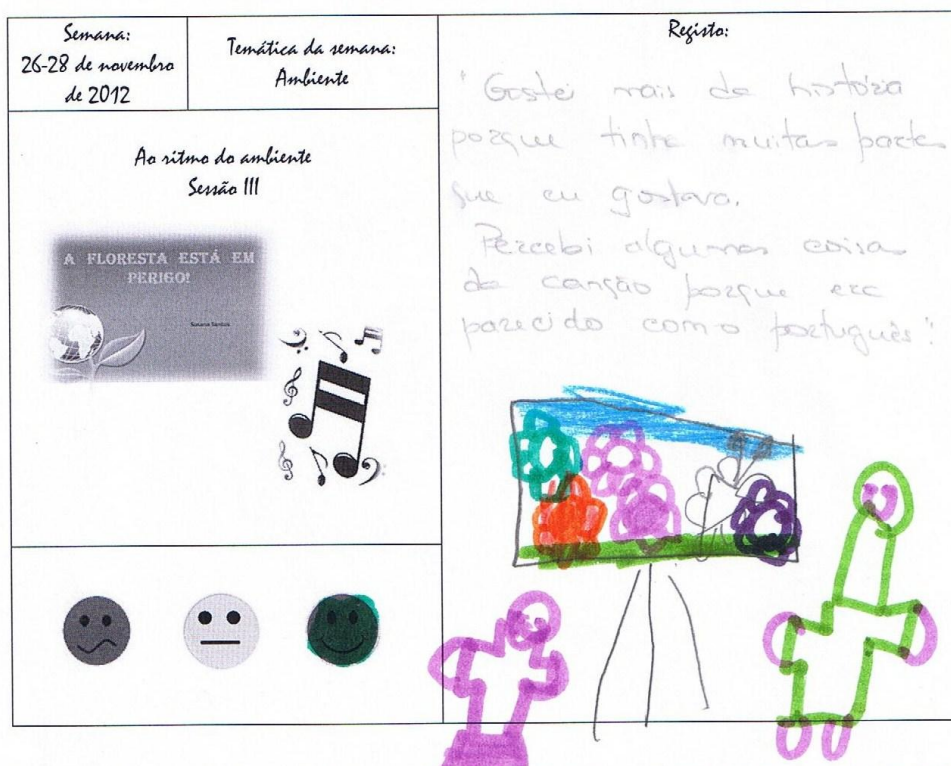 Semana:
26-28 de novembro
de 2012
Temática da semana:
Ambiente
Ao ritmo do ambiente
Sessão III
A FLORESTA ESTÁ EM
PERIGO!
Susana Santos
Registo:
"Gostei mais da história
porque tinha muitas partes
que eu gostava.
Percebi algumas coisas
da canção porque era
parecido com o português"